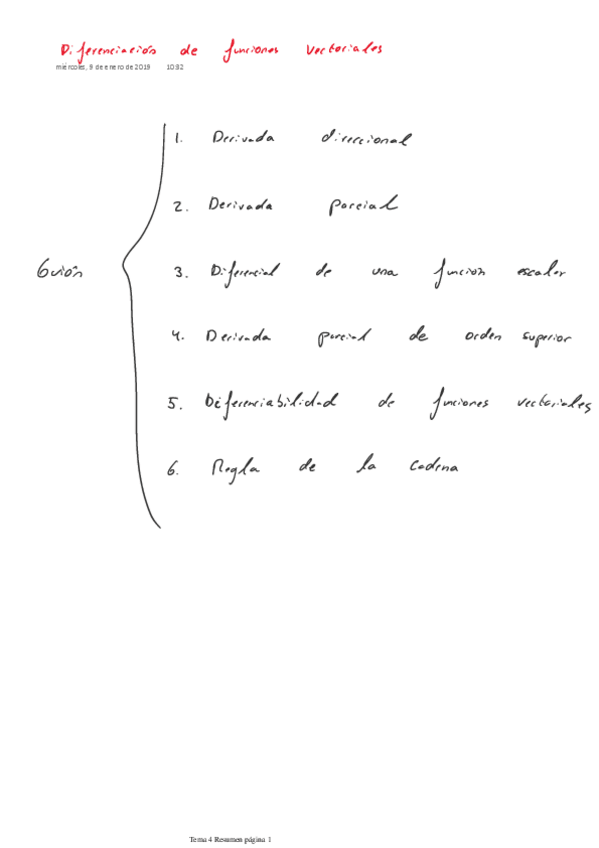 Diferenciación de funciones vectoriales
miércoles, 9 de enero de 2019 10:32
1. Derivada direccional
2. Derivada parcial
Guión
3. Diferencial de una función escalar
4. Derivada parcial de orden superior
5. Diferenciabilidad de funciones vectoriales
6. Regla de la cadena
Tema 4 Resumen página 1